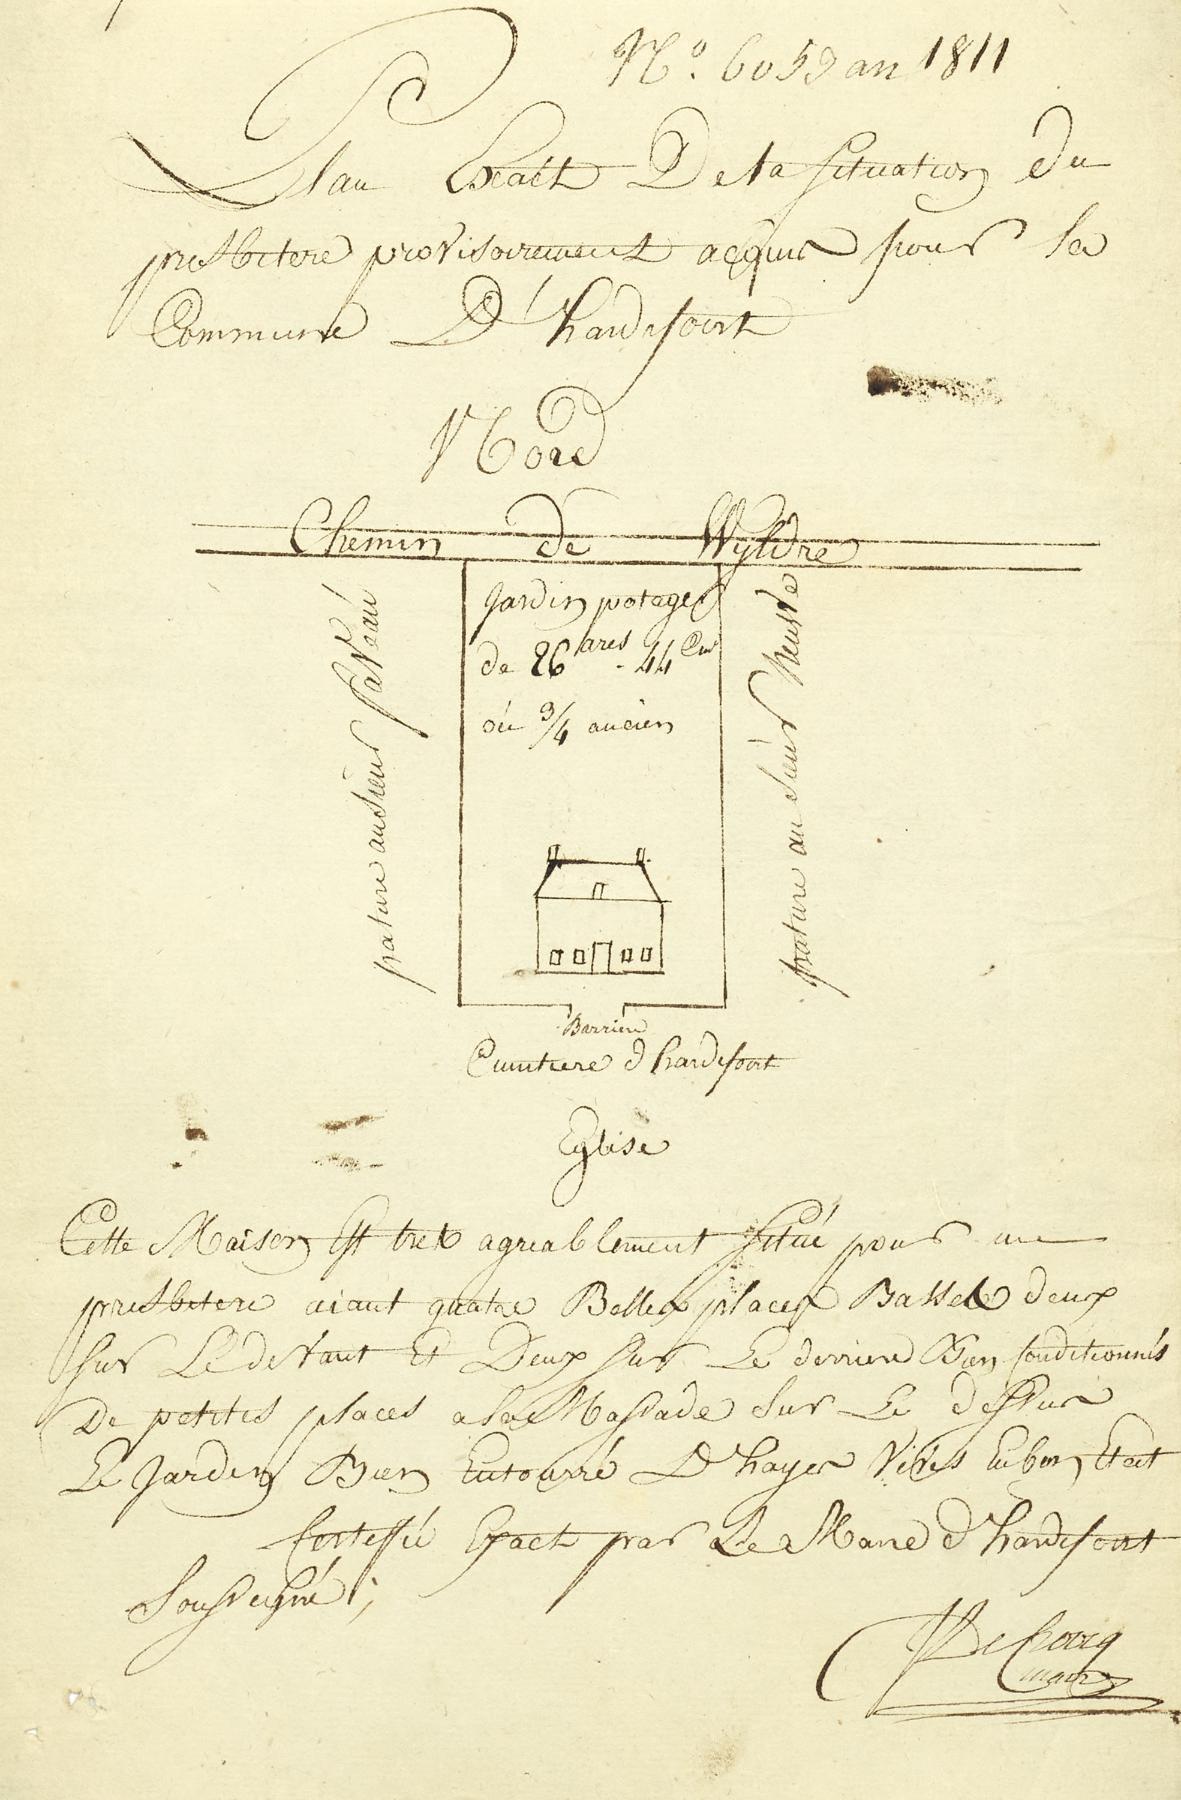 N.º 6059 an 1811
Plan Exact De la situation du
presbitere provisoirement acquis pour la
Commune D'hardifort
Nord
Chemin de Wyldre
Jardin potager
de 26 ares - 44 Cen
ou 3/4 ancien
pature au sieur
pature au sieur
Barriere
Cimitiere d'hardifort
Eglise
Cette Maison Est tres agreablement situé pour un
presbitere aiant quatre Belles places Basses deux
sur Le devant Et Deux sur Le derriere Bien Conditionnés
De petites places a la Massade sur Le dessus
Le Jardin Bien Entourré D'hayes Vives En bon Etat
Certifié Exact par Le Maire d'hardifort
Soussigné ;
maire